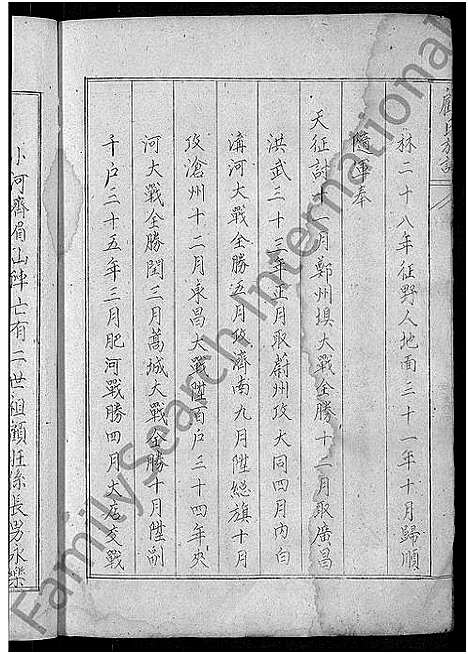 顧氏族譜
林二十八年征野人地面三十一年十月歸順
隨軍奉
天征討十一月鄭州垻大戰全勝十二月取廣昌
洪武三十三年正月取蔚州攻大同四月內白
溝河大戰全勝五月攻濟南九月陞總旗十月
攻滄州十二月東昌大戰陞百戶三十四年夾
河大戰全勝閏三月藁城大戰全勝十月陞副
千戶三十五年三月肥河戰勝四月大店交戰
小河齊眉山陣亡有二世祖顧旺係長男永樂
FamilySearch International